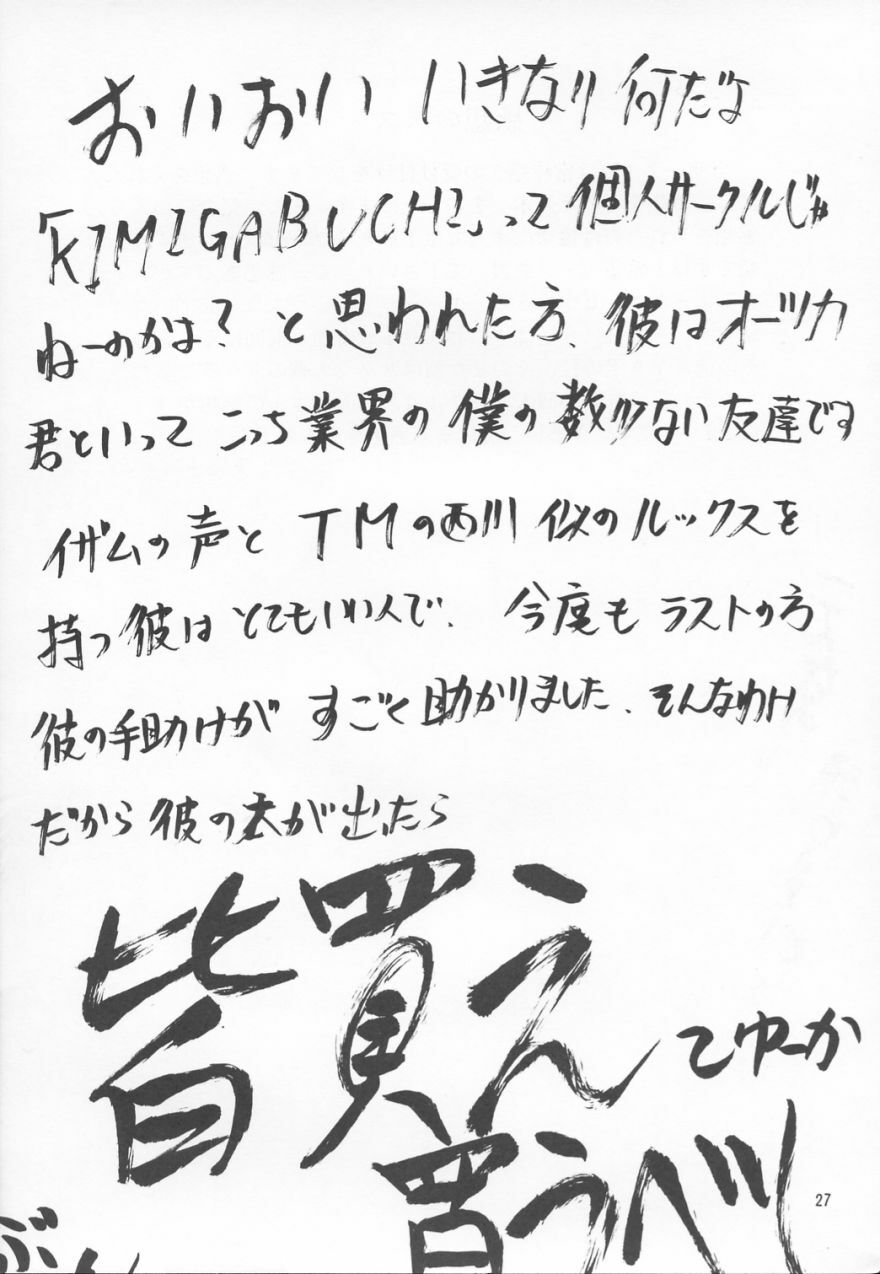 おいおい いきなり 何だよ
「KIMIGABUCHI」って個人サークルじゃ
ねーのかよ? と思われた方、彼はオーツカ
君といって こっち業界の僕の数少ない友達です
イザムの声と TMの西川似のルックスを
持つ彼は とてもいい人で、今度もラストの方
彼の手助けが すごく助かりました、そんなわけ
だから彼の本が出たら
皆買え
てゆーか
買うべし
27